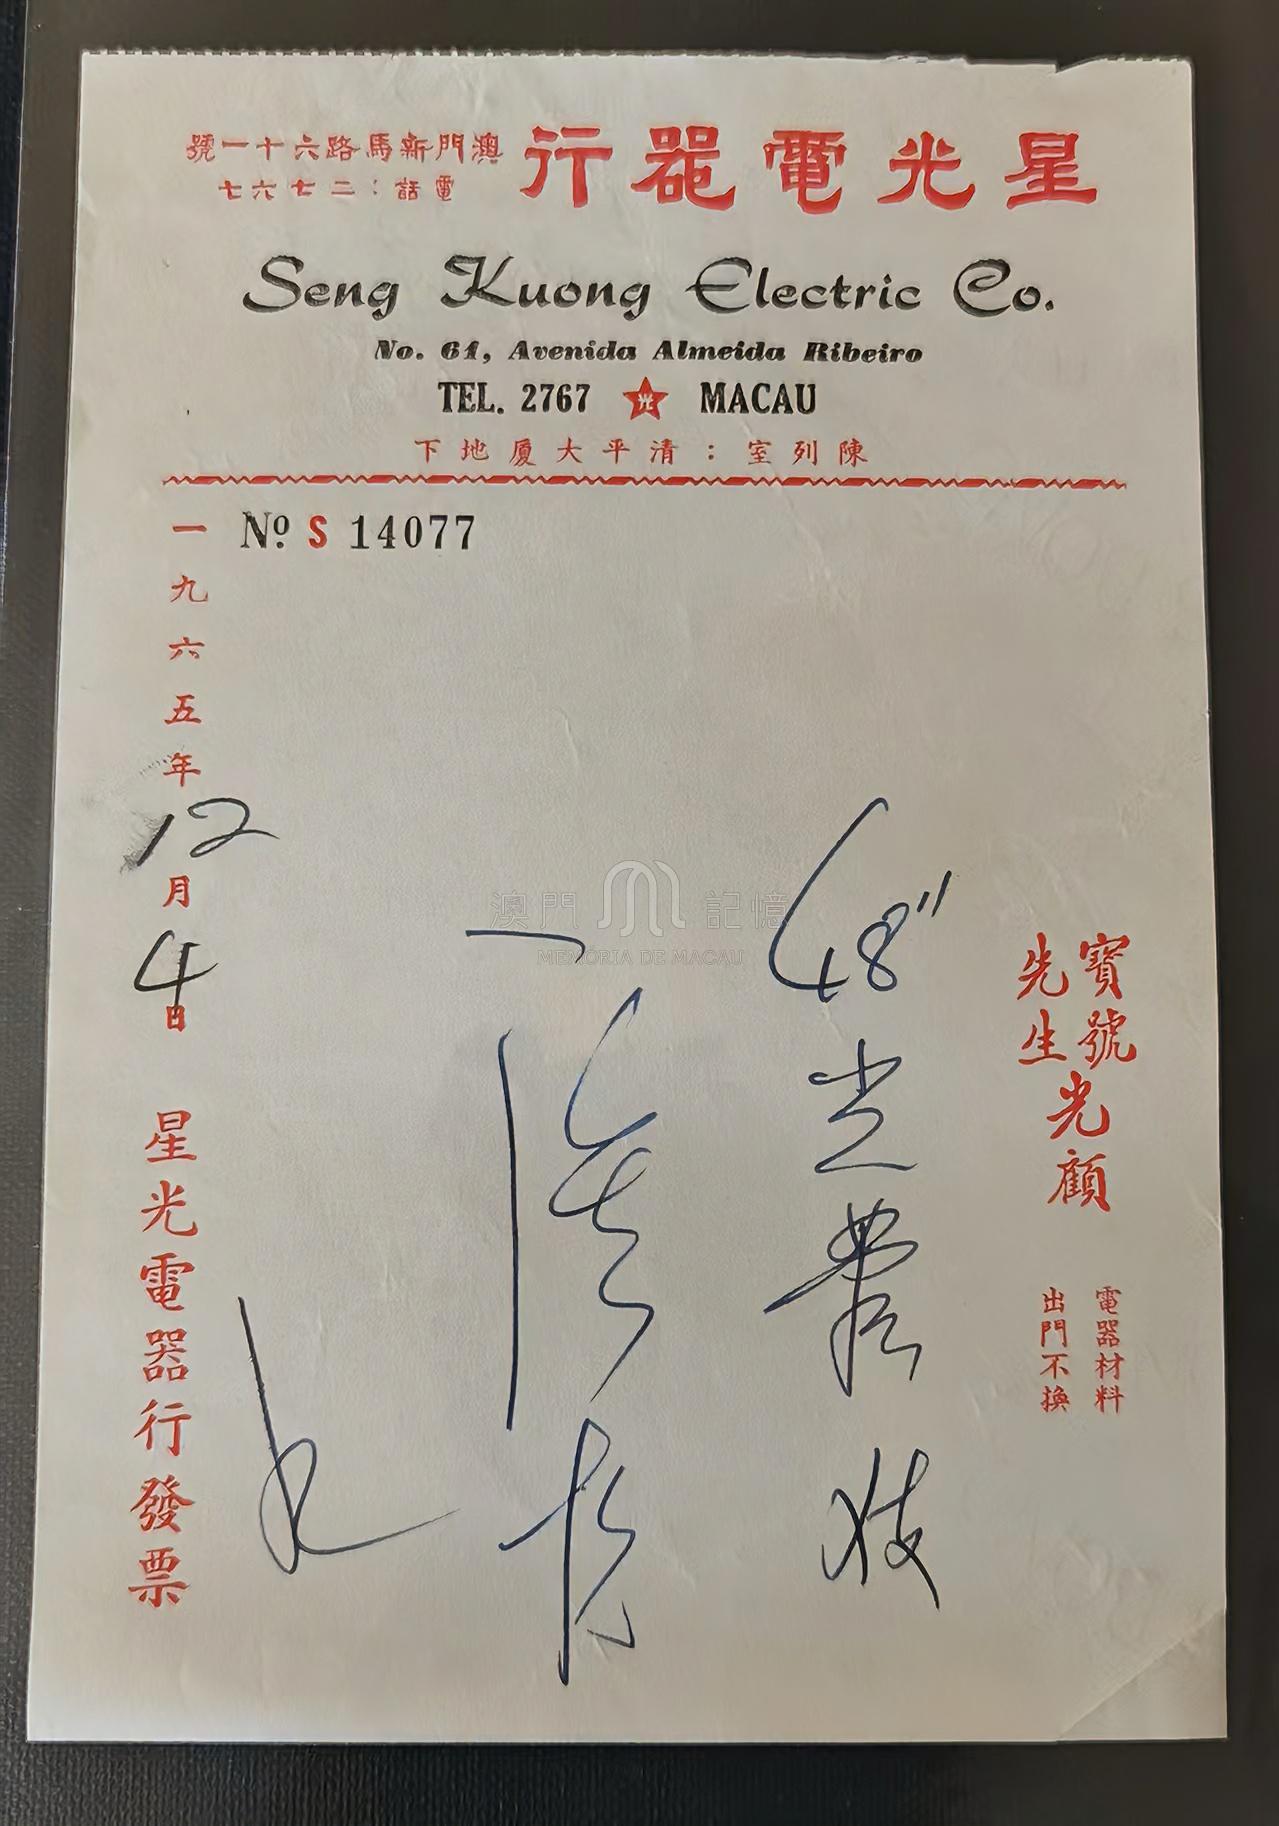 星光電器行
澳門新馬路六十一號
電話：二七六七
Seng Kuong Electric Co.
No. 61, Avenida Almeida Ribeiro
TEL. 2767 光 MACAU
陳列室：清平大廈地下
No. S 14077
寶號
先生
光顧
電器材料
出門不換
48"光
一九六五年12月4日
星光電器行發票
澳門記憶
MEMÓRIA DE MACAU